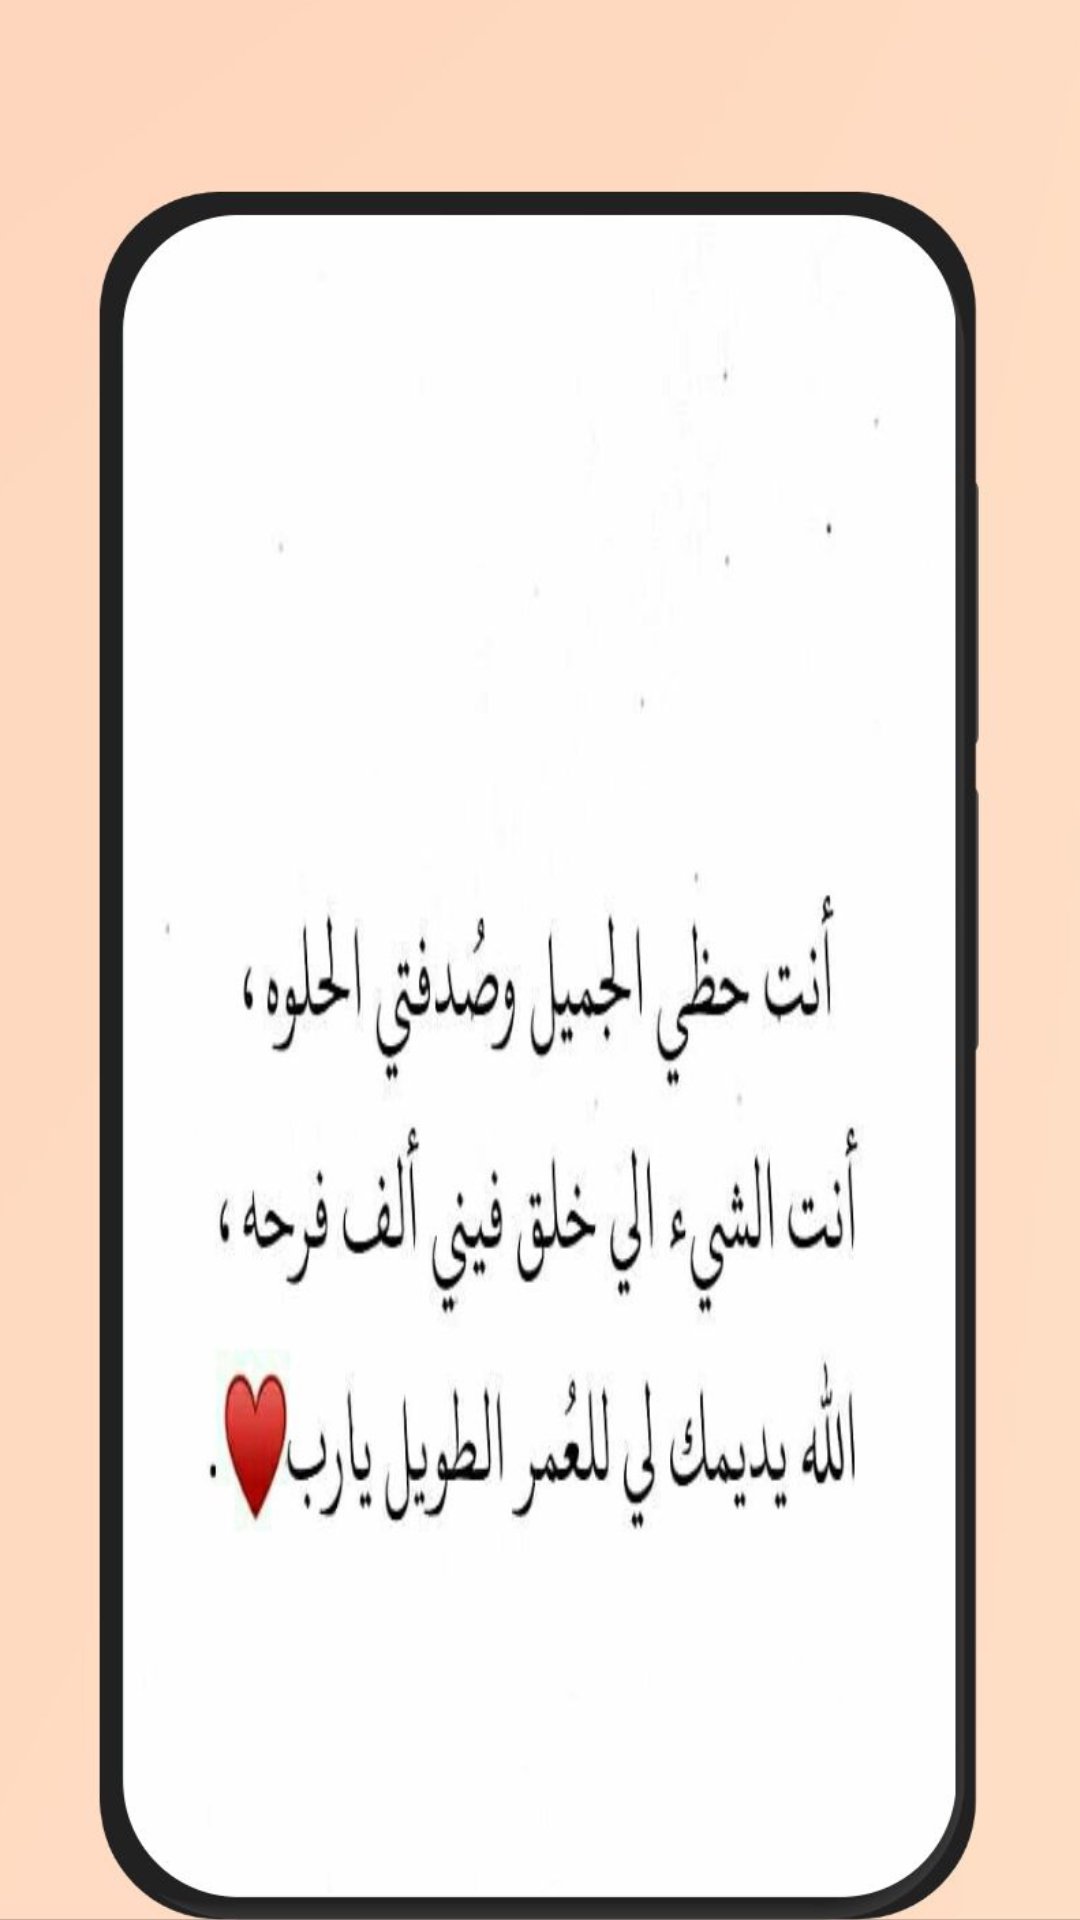 أنت حظي الجميل وصُدفتي الحلوه ،
أنت الشيء الي خلق فيني ألف فرحه ،
الله يديمك لي للعُمر الطويل يارب♥️.